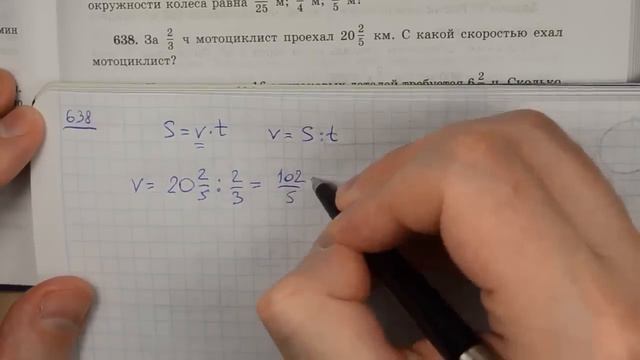 мин
окружности колеса равна /25 м; /4 м, /5 м?
638. За 2/3 ч мотоциклист проехал 20 2/5 км. С какой скоростью ехал
мотоциклист?
требуется 6 2 ч. Сколько
638
S = v · t v = S : t
v = 20 2/5 : 2/3 = 102/5